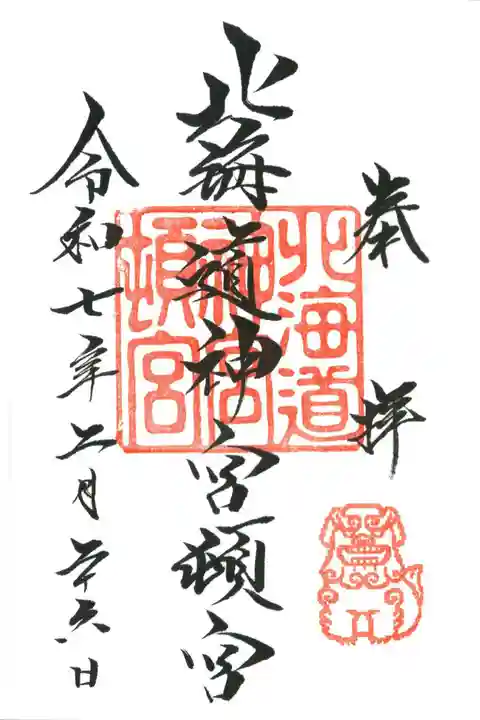 奉拝
北海道神宮頓宮
北海道
神宮
頓宮
令和七年二月二十六日